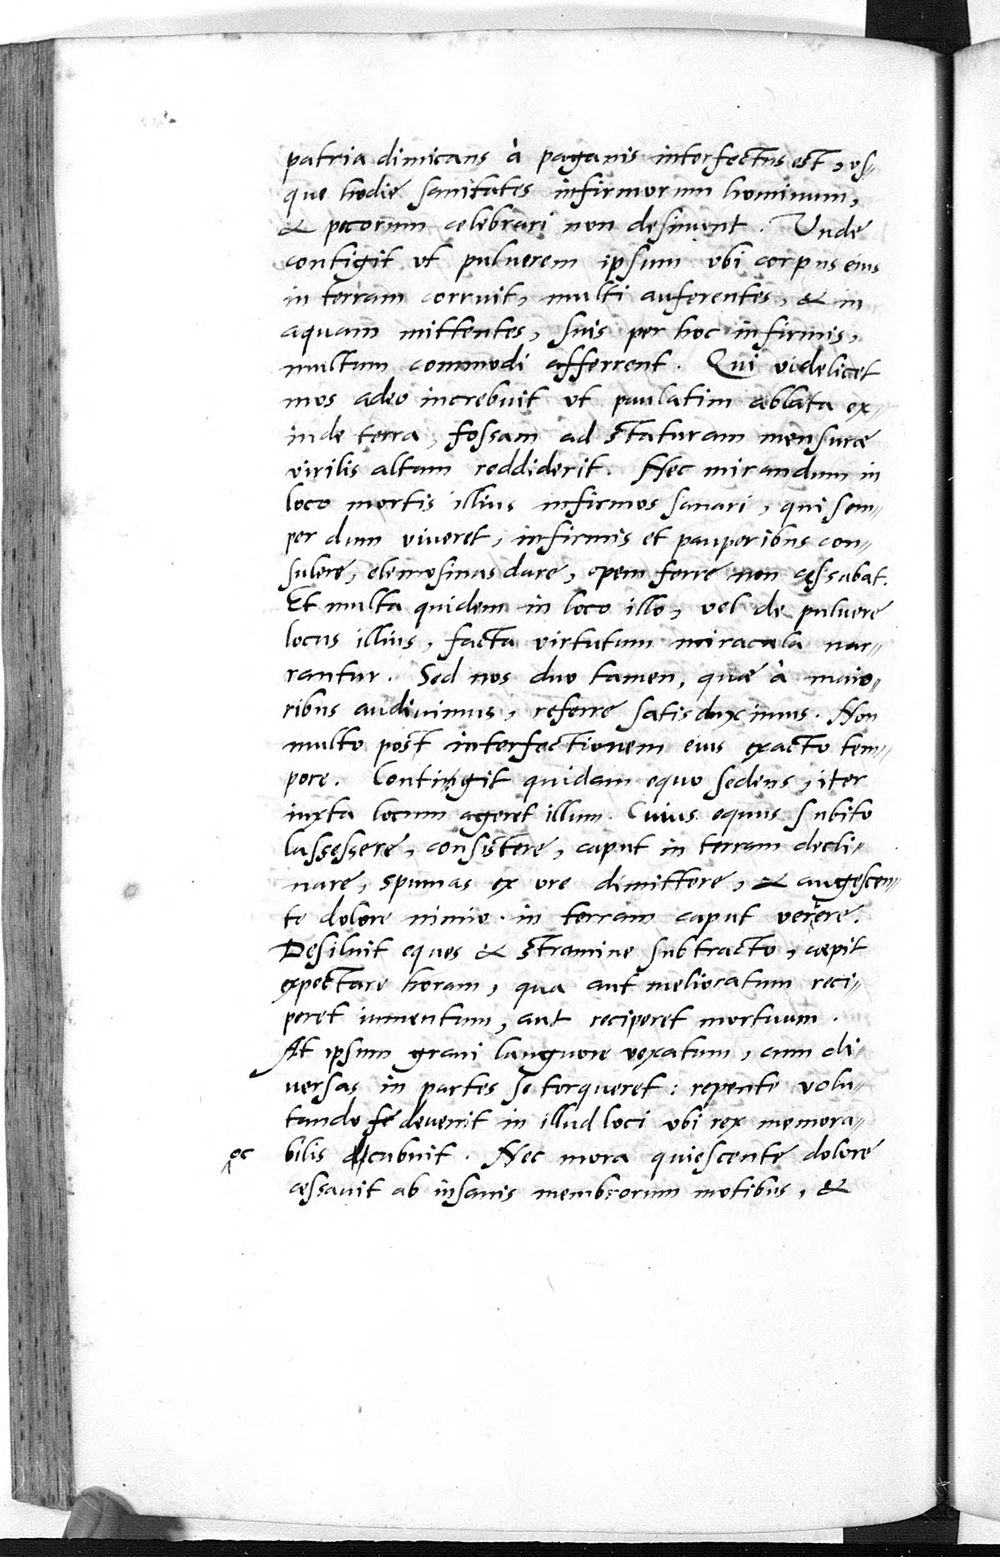 patria dimicans à paganis interfectus est, us⸗
que hodie sanitates infirmorum hominum,
& pecorum celebrari non desinunt. Unde
contigit ut puluerem ipsum ubi corpus eius
in terram corruit, multi auferentes, & in
aquam mittentes, suis per hoc infirmis,
multum commodi afferrent. Qui videlicet
mos adeo increbuit ut paulatim ablata ex⸗
inde terra, fossam ad staturam mensuræ
virilis altam reddiderit. Nec mirandum in
loco mortis illius infirmos sanari, qui sem⸗
per dum viveret, infirmis et pauperibus con⸗
sulere, elemosinas dare, opem ferre non cessabat.
Et multa quidem in loco illo, vel de puluere
locus illius, facta virtutum miracula nar⸗
rantur. Sed nos duo tamen, quæ à maio⸗
ribus audivimus, referre satis duximus. Non
multo post interfectionem eius exacto tem⸗
pore. Contingit quidam equo sedens, iter
iuxta locum ageret illum. Cuius equus subito
lassessere, consistere, caput in terram decli⸗
nare, spumas ex ore dimittere, & augescen⸗
te dolore nimio in terram caput verere.
Desiluit eques & stramine subtracto, cæpit
expectare horam, qua aut melioratum reci⸗
peret iumentum, aut reciperet mortuum.
At ipsum gravi languore vexatum, cum di⸗
versas in partes se torqueret: repente volu⸗
tando se devenit in illud loci ubi rex memora⸗
oc bilis occubuit. Nec mora quiescente dolore
cessavit ab insanis membrorum motibus, &